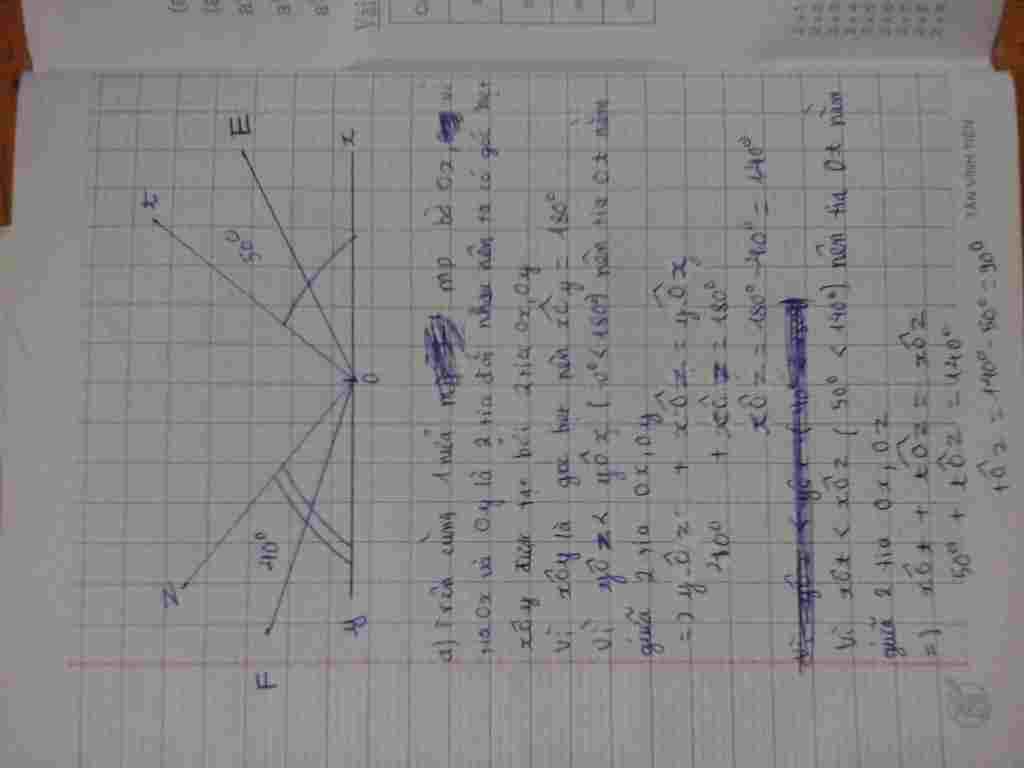 Z
t
E
F
40°
50°
y
O
x
a) Trên cùng 1 nửa mp bờ Ox vì
tia Ox và Oy là 2 tia đối nhau nên ta có góc bẹt
xÔy được tạo bởi 2 tia Ox, Oy
Vì xÔy là góc bẹt nên xÔy = 180°
Vì yÔz < yÔx ( < 180°) nên tia Oz nằm
giữa 2 tia Ox, Oy
=) yÔz + xÔz = yÔx
40° + xÔz = 180°
xÔz = 180° - 40° = 140°
Vì xÔt < xÔz ( 50° < 140°) nên tia Ot nằm
giữa 2 tia Ox, Oz
=) xÔt + tÔz = xÔz
50° + tÔz = 140°
tÔz = 140° - 50° = 90°
TÂN VĨNH TIẾN